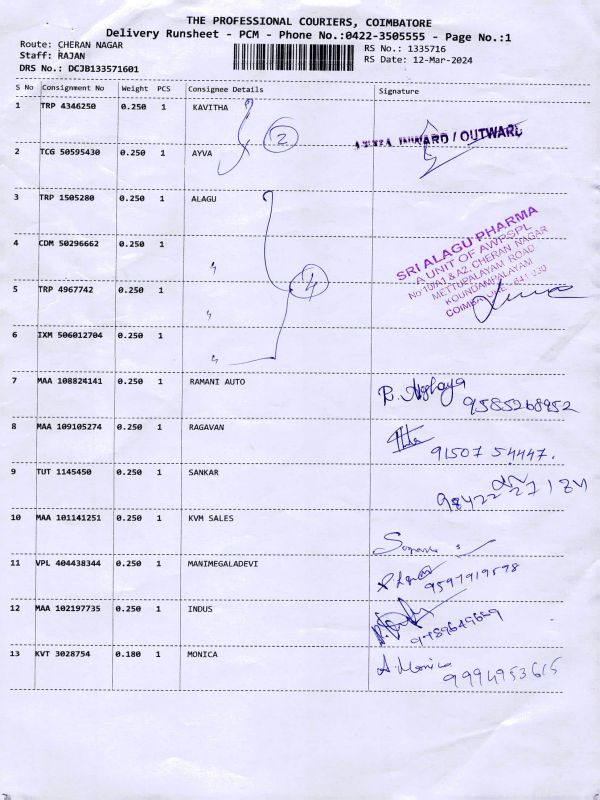 THE PROFESSIONAL COURIERS, COIMBATORE
Delivery Runsheet - PCM - Phone No.:0422-3505555 - Page No.:1
Route: CHERAN NAGAR
Staff: RAJAN
DRS No.: DCJB133571601
RS No.: 1335716
RS Date: 12-Mar-2024
S No Consignment No Weight PCS Consignee Details Signature
1 TRP 4346250 0.250 1 KAVITHA
2
INWARD / OUTWARD
2 TCG 50595430 0.250 1 AYVA
3 TRP 1505280 0.250 1 ALAGU
SRI ALAGU PHARMA
A UNIT OF AWPSPL
No:10/A1 & A2, CHERAN NAGAR
METTUPALAYAM ROAD
KOUNDAMPALAYAM
COIMBATORE - 641 030
4 CDM 50296662 0.250 1 "
4
5 TRP 4967742 0.250 1 "
6 IXM 506012704 0.250 1 "
7 MAA 108824141 0.250 1 RAMANI AUTO
9585268952
8 MAA 109105274 0.250 1 RAGAVAN
91507 54447.
9 TUT 1145450 0.250 1 SANKAR
98422 27124
10 MAA 101141251 0.250 1 KVM SALES
11 VPL 404438344 0.250 1 MANIMEGALADEVI
9597919598
12 MAA 102197735 0.250 1 INDUS
9789649659
13 KVT 3028754 0.180 1 MONICA
A. Monica
9994953615